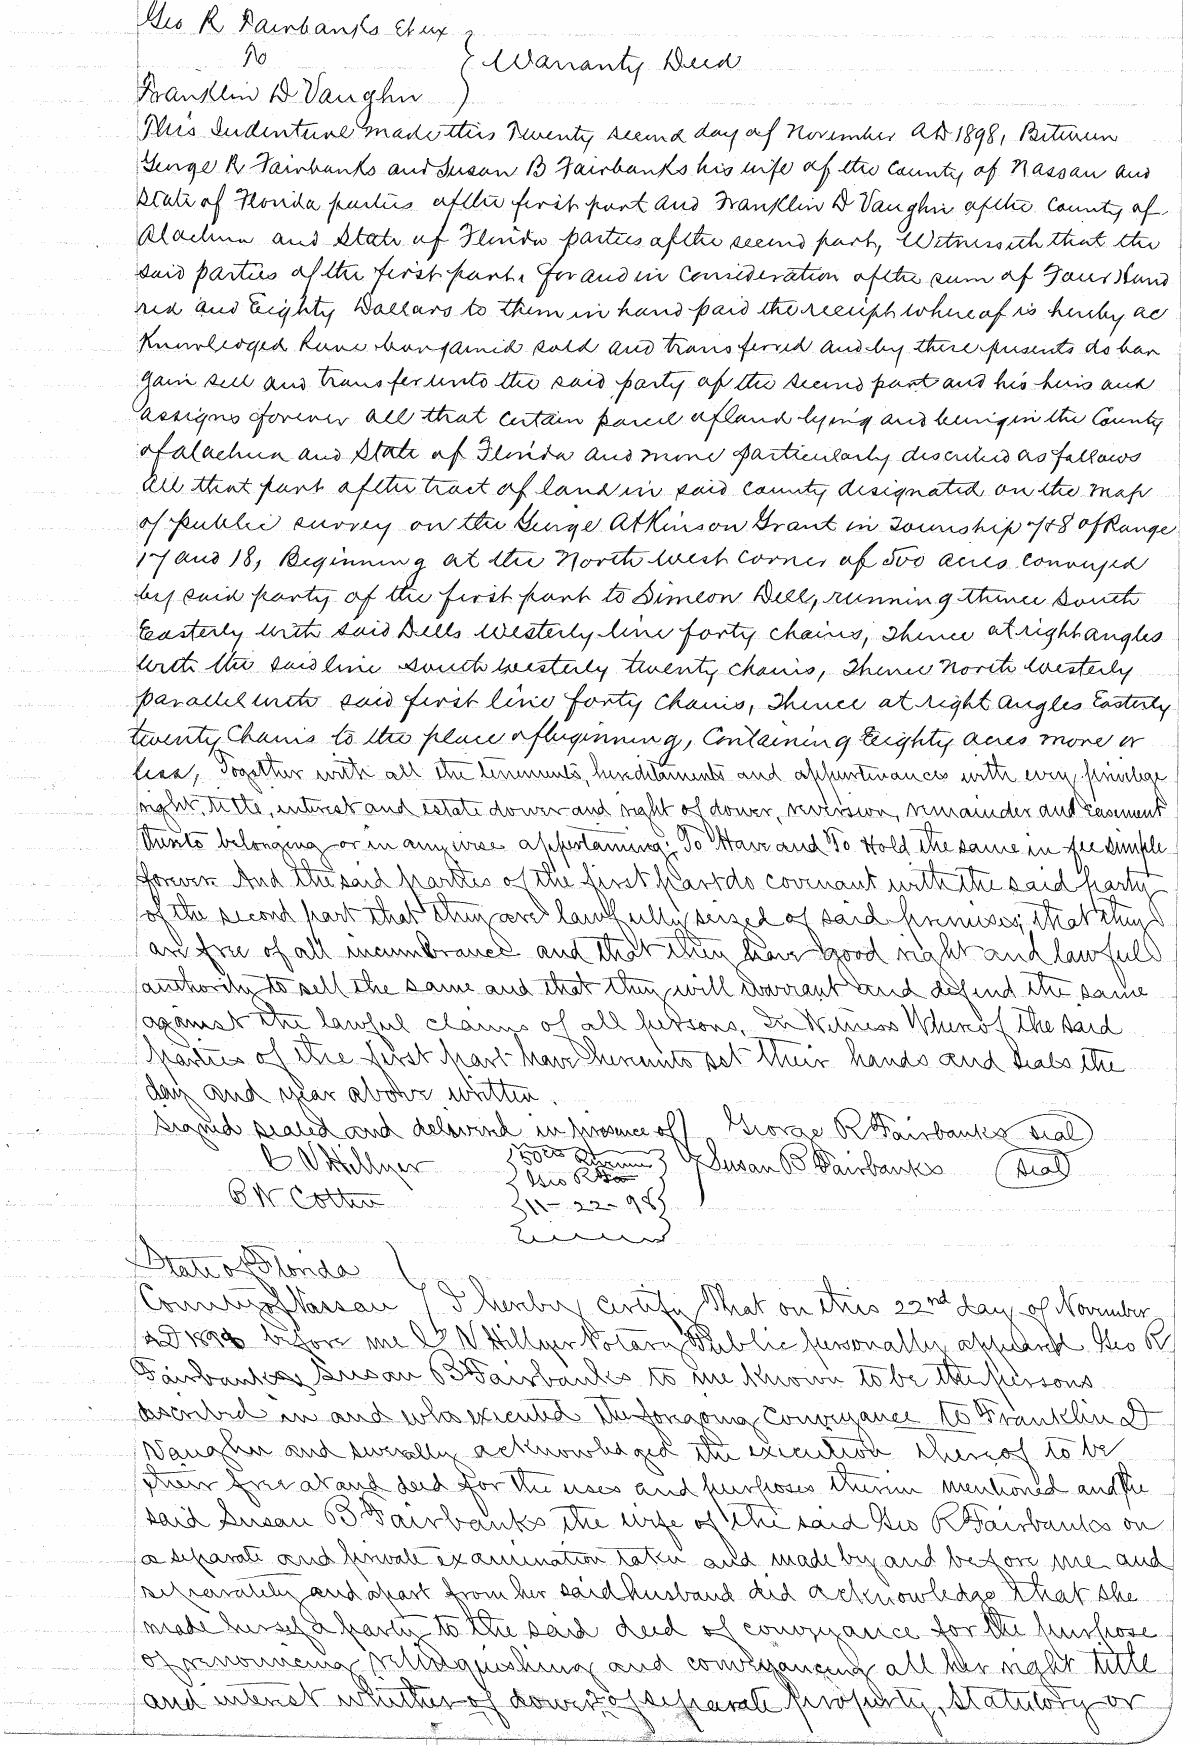 Geo R Fairbanks et ux
To
Warranty Deed
Franklin D Vaughn
This Indenture made this Twenty second day of November AD 1898, Between
George R Fairbanks and Susan B Fairbanks his wife of the County of Nassau and
State of Florida parties of the first part and Franklin D Vaughn of the County of
Alachua and State of Florida parties of the second part, Witnesseth that the
said parties of the first part, for and in consideration of the sum of Four Hund
red and Eighty Dollars to them in hand paid the receipt whereof is hereby ac
knowledged have bargained sold and transferred and by these presents do bar
gain sell and transfer unto the said party of the second part and his heirs and
assigns forever all that certain parcel of land lying and being in the County
of Alachua and State of Florida and more particularly described as follows
All that part of the tract of land in said County designated on the map
of public survey on the George Atkinson Grant in Township 7 & 8 of Range
17 and 18, Beginning at the North West corner of 500 acres conveyed
by said party of the first part to Simeon Dell, running thence South
Easterly with said Dells Westerly line forty chains, Thence at right angles
with the said line South Westerly twenty chains, Thence North Westerly
parallel with said first line forty chains, Thence at right angles Easterly
twenty chains to the place of beginning, Containing Eighty acres more or
less, Together with all the tenements, hereditaments and appurtenances with every privilege
right, title, interest and estate dower and right of dower, reversion, remainder and easement
thereto belonging or in anywise appertaining: To Have and To Hold the same in fee simple
forever. And the said parties of the first part do covenant with the said party
of the second part that they are lawfully seized of said premises, that they
are free of all incumbrance and that they have good right and lawful
authority to sell the same and that they will warrant and defend the same
against the lawful claims of all persons. In Witness Whereof the said
parties of the first part have hereunto set their hands and seals the
day and year above written.
Signed sealed and delivered in presence of George R Fairbanks seal
C V Hillyer 50cts Revenue Susan B Fairbanks seal
Geo R Fa
B W Cotten 11-22-98
State of Florida
County of Nassau I hereby certify That on this 22nd day of November
AD 1898 before me C V Hillyer Notary Public personally appeared Geo R
Fairbanks & Susan B Fairbanks to me known to be the persons
described in and who executed the foregoing Conveyance to Franklin D
Vaughn and severally acknowledged the execution thereof to be
their free act and deed for the uses and purposes therein mentioned and the
said Susan B Fairbanks the wife of the said Geo R Fairbanks on
a separate and private examination taken and made by and before me and
separately and apart from her said husband did acknowledge that she
made herself a party to the said deed of conveyance for the purpose
of renouncing relinquishing and conveyancing all her right title
and interest whether of dower or of separate property, statutory or